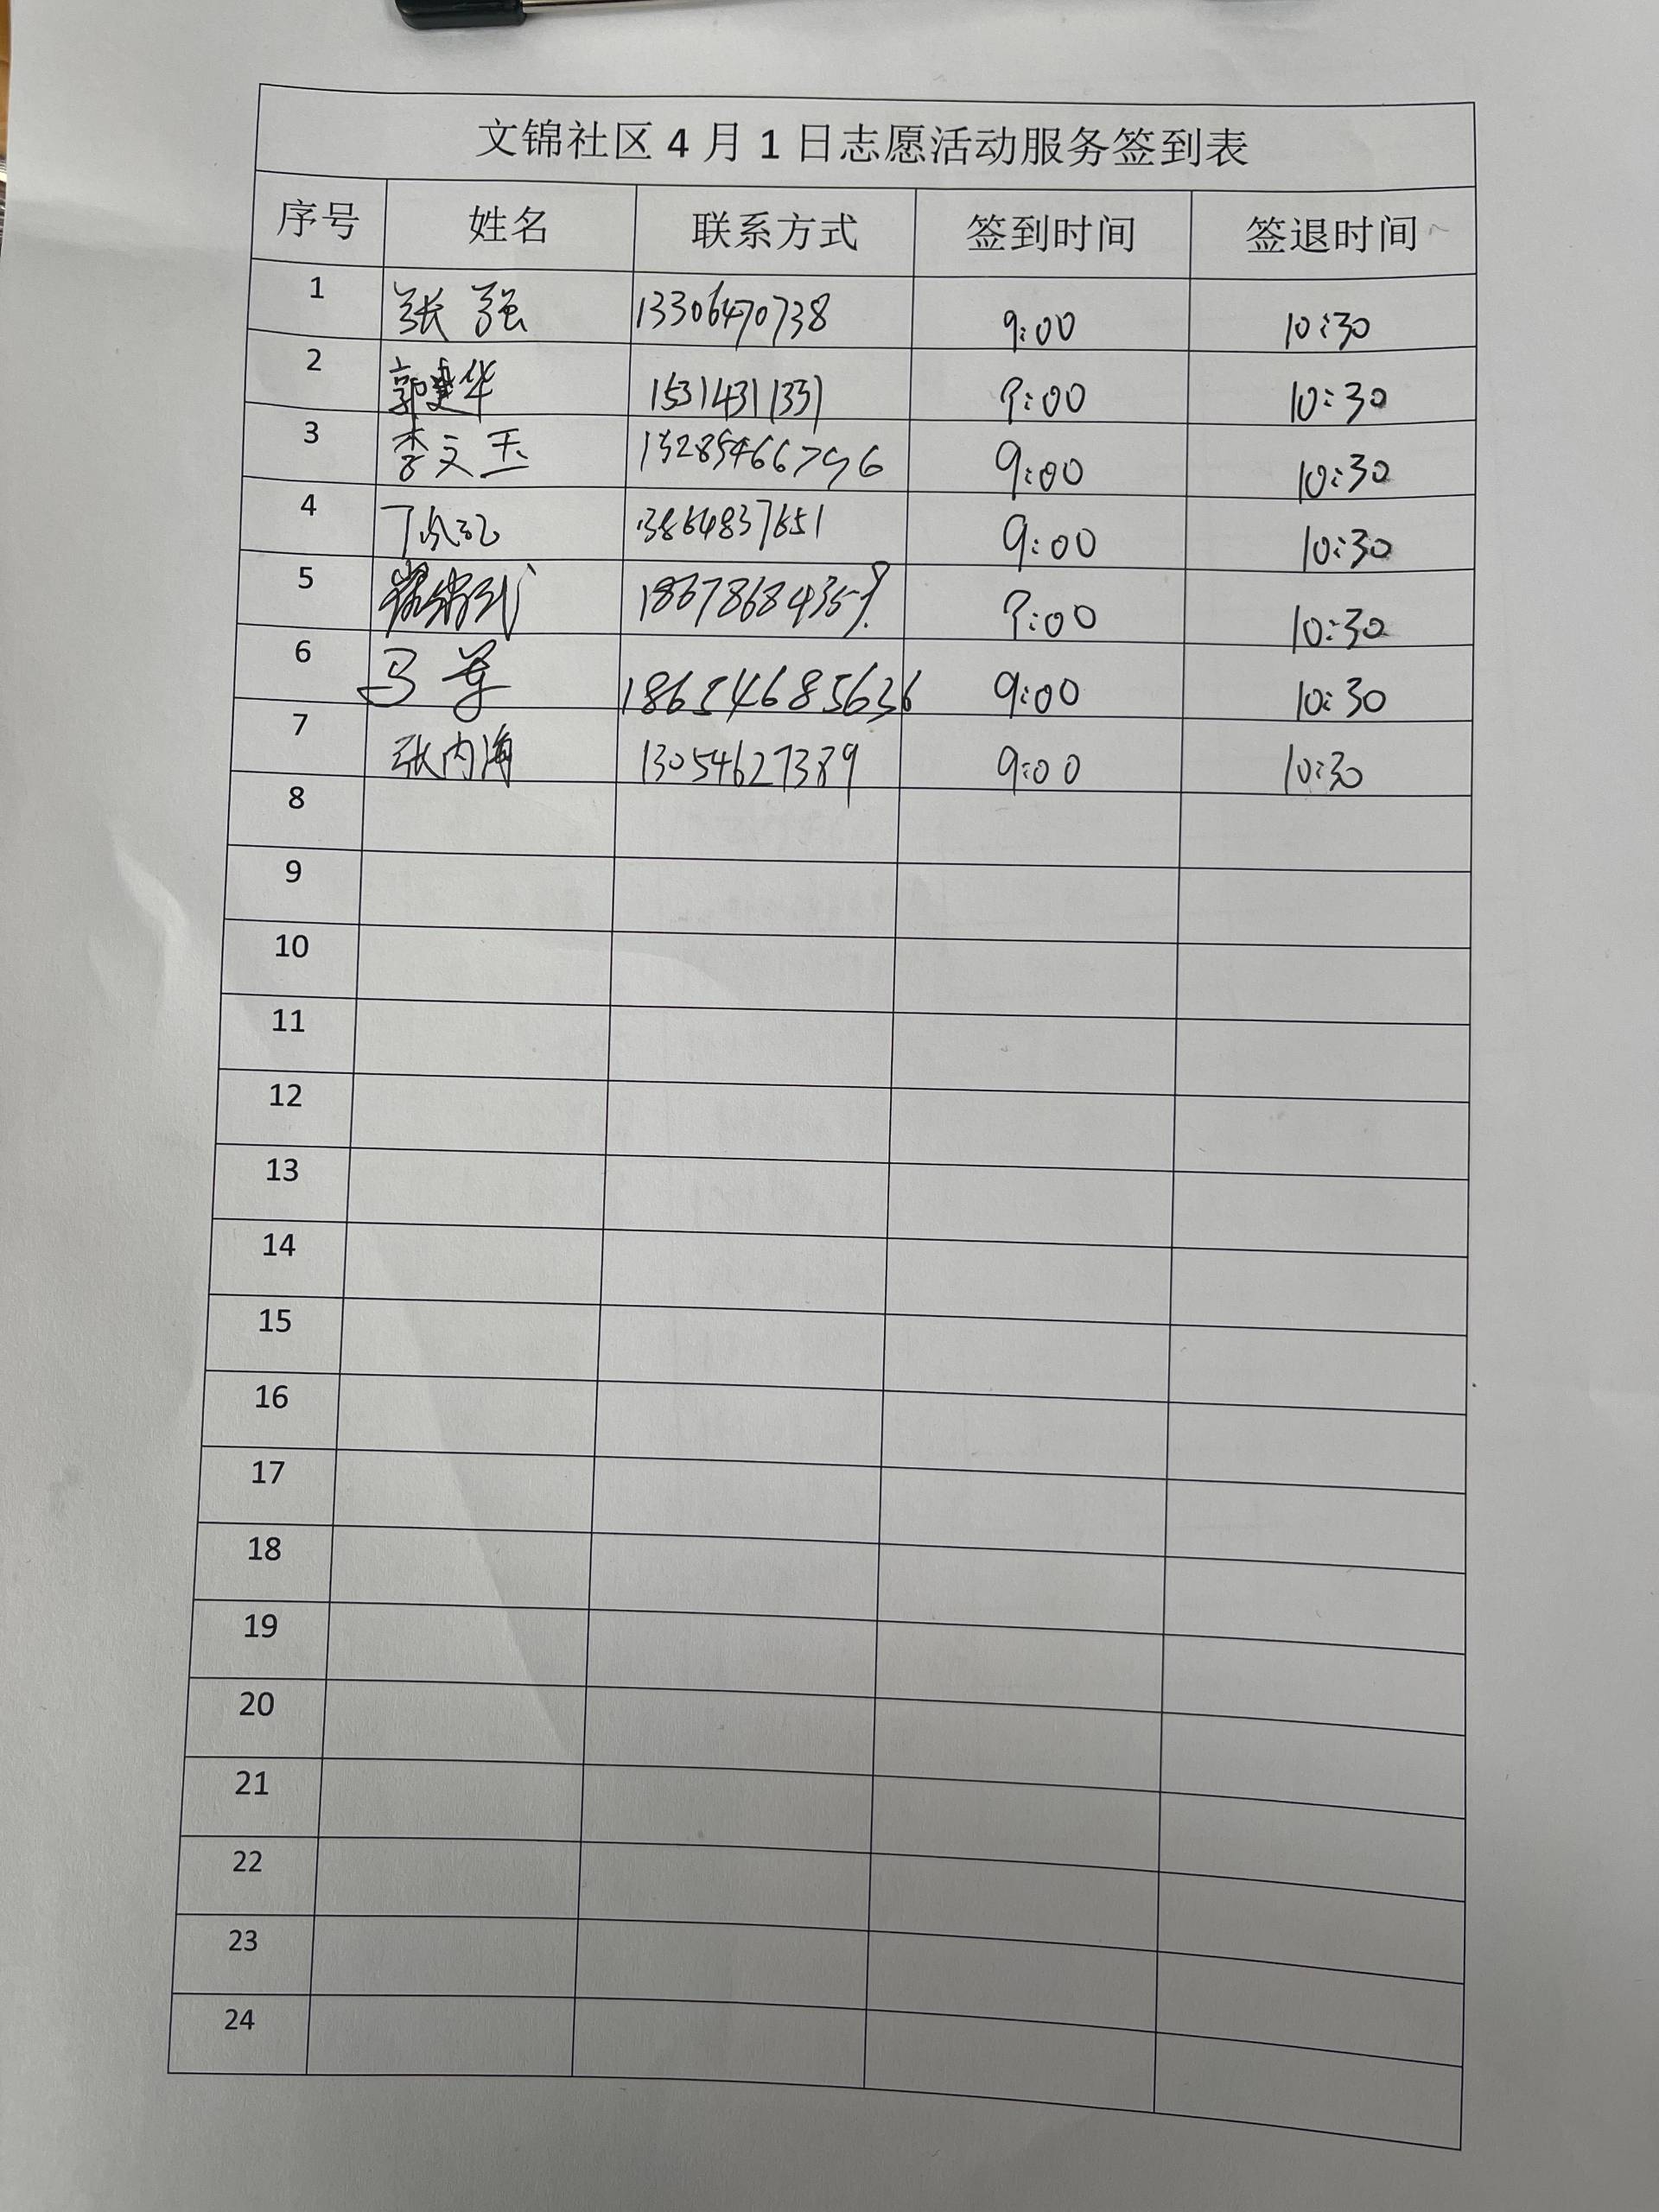 文锦社区4月1日志愿活动服务签到表
序号 姓名 联系方式 签到时间 签退时间
1 张强 13306470738 9:00 10:30
2 郭建华 15314311331 9:00 10:30
3 李文玉 15285466796 9:00 10:30
4 丁 13864837651 9:00 10:30
5 9:00 10:30
6 马 18654685636 9:00 10:30
7 张内海 13054627389 9:00 10:30
8
9
10
11
12
13
14
15
16
17
18
19
20
21
22
23
24